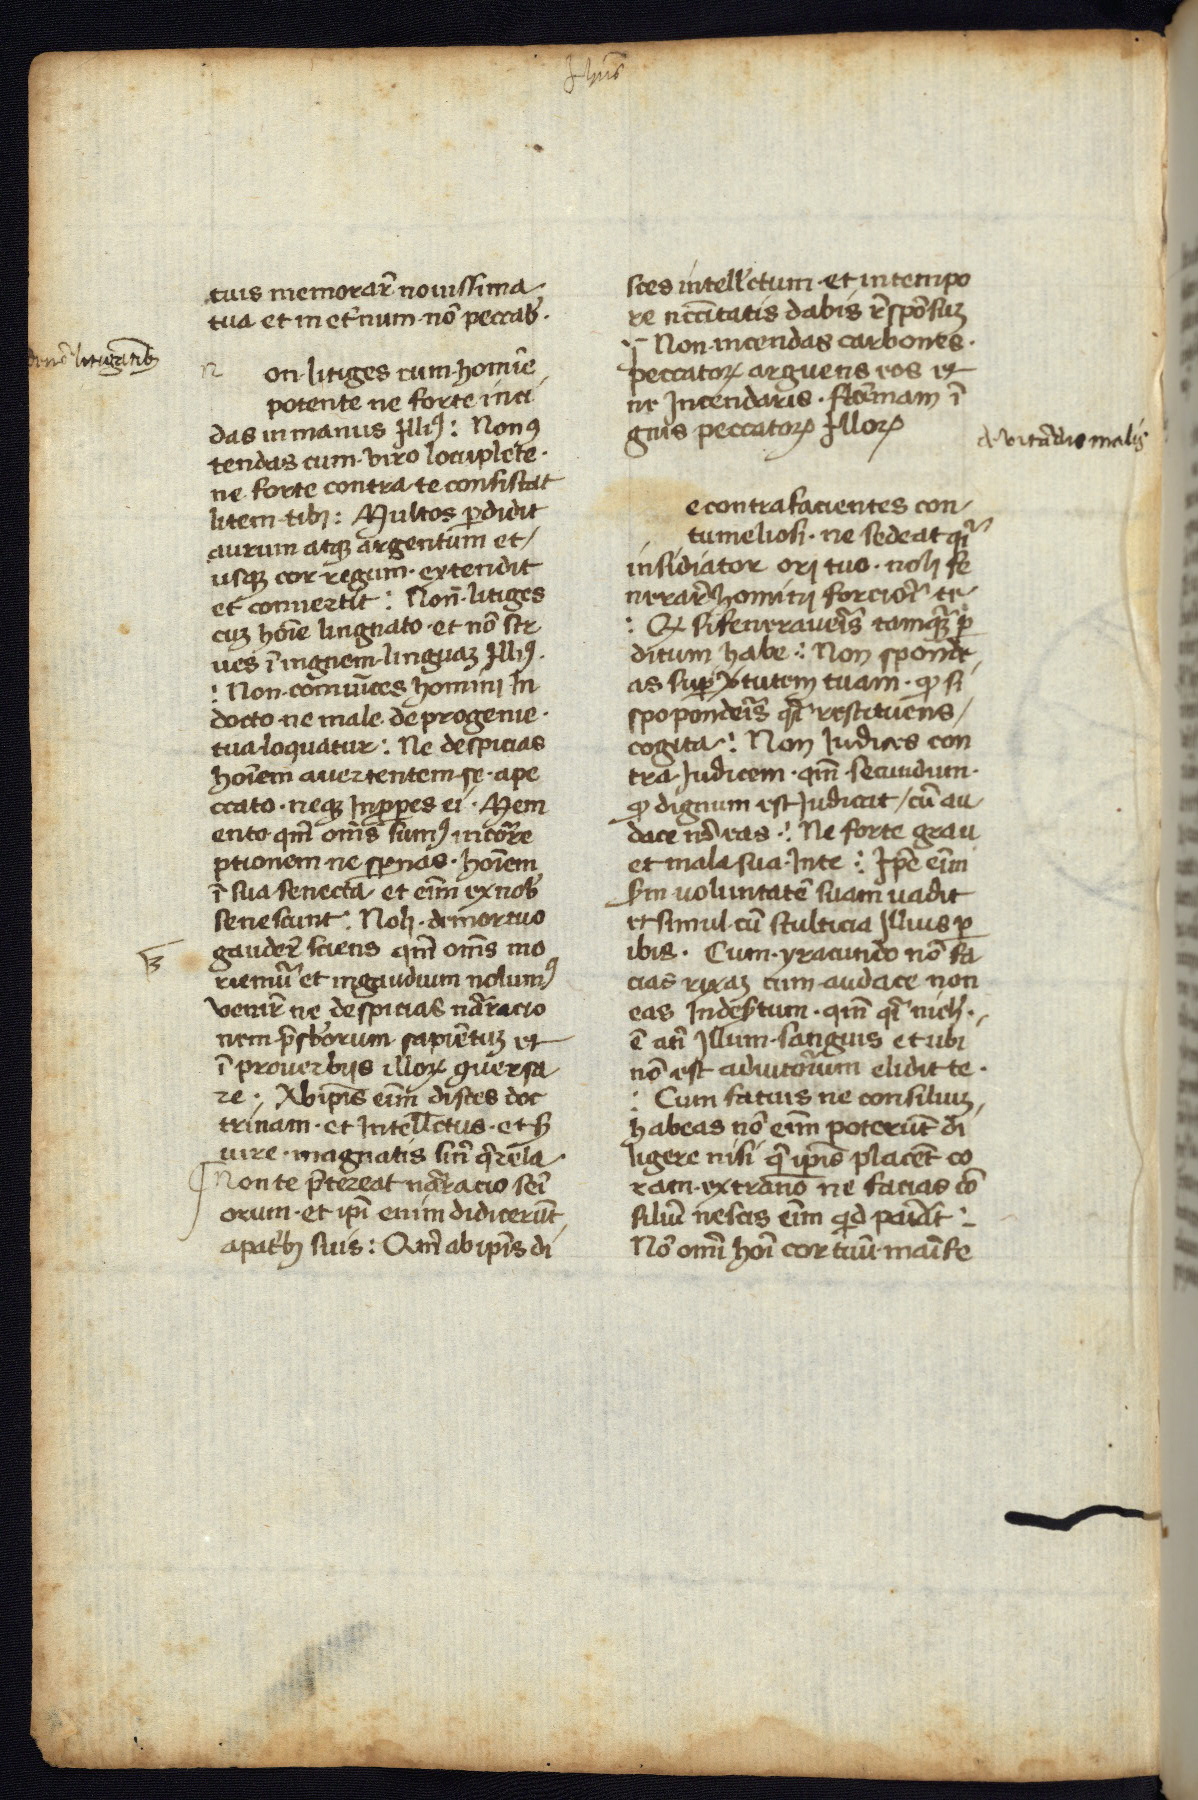 Jhus
tuis memorar̄ nouissima
tua et in et̄num nō peccab̄.
on litiges cum homīe
potente ne forte inci
das in manus Illiꝰ: Non ꝯ
tendas cum viro locuplete.
ne forte contra te consistat
litem tibi: Multos ꝑdidit
aurum atqꝫ argentum et/
usqꝫ cor regum extendit
et conuertit: Non litiges
cuꝫ hoīe linguato et nō str
ues ī ingnem linguaꝫ Illiꝰ.
: Non cōmūices homini In
docto ne male de progenie.
tua loquatur: Ne despicias
hoīem auertentem se a pe
ccato. neqꝫ Inꝓpes ei. Mem
ento qm̄ om̄s sumꝰ in corre
ptionem ne sꝑnas. hoīem
ī sua senecta et eīm ex nob̄
senescunt: Noli. de mortuo
gauder̄ sciens qm̄ om̄s mo
riemur̄ et in gaudium nolumꝰ
venir̄ ne despicias nar̄racio
nem pr̄sb̄orum sapiētuꝫ et
ī prouerbijs illoꝝ ꝯuersa
re. Ab ip̄is eīm disces doc
trinam. et Intellectus. et s̄
uire. magnatis sīn q̄rela.
Non te p̄tereat nar̄racio sēi
orum. et ip̄i enim didicerūt
a pat̄bꝫ suis: Qm̄ ab ip̄is di
sces intell̄ectum et in tempo
re nc̄citatis dabis r̄spōsuꝫ
Non incendas carbones.
peccatoꝝ arguens eos et
ne Incendaris. flām̄mam ī
gnis peccatoꝝ Illoꝝ
de uitādis malis
e contra facientes con
tumeliosi. ne sedeat q̄i
insidiator ori tuo. noli fe
nerar̄ homini forciori te
: Q si feneraueris tamqꝫ ꝑ
ditum habe: Non sponde
as suꝑ v̄tutem tuam. ꝙ si
spoponderis q̄i restituens/
cogita: Non Iudices con
tra Iudicem. qm̄ secundum.
ꝙ dignum est Iudicat/ cū au
dace nō eas: Ne forte grau
et mala sua Inte: Ip̄e eīm
s̄m uoluntatē suam uadit
et simul cū stulticia Illius ꝑ
ibis. Cum yracundo nō fa
cias rixaꝫ cum audace non
eas In des̄tum. qm̄ q̄i nich̄.
ē an̄ Illum sanguis et ubi
nō est adiutorium elidit te.
: Cum fatuis ne consiliuꝫ
habeas nō eīm poterūt di
ligere nisi q̄ ip̄is placēt co
ram extraneo ne facias cō
siliū nescis eīm qͥd pariet:
Nō omī hoī cor tuū maīfe